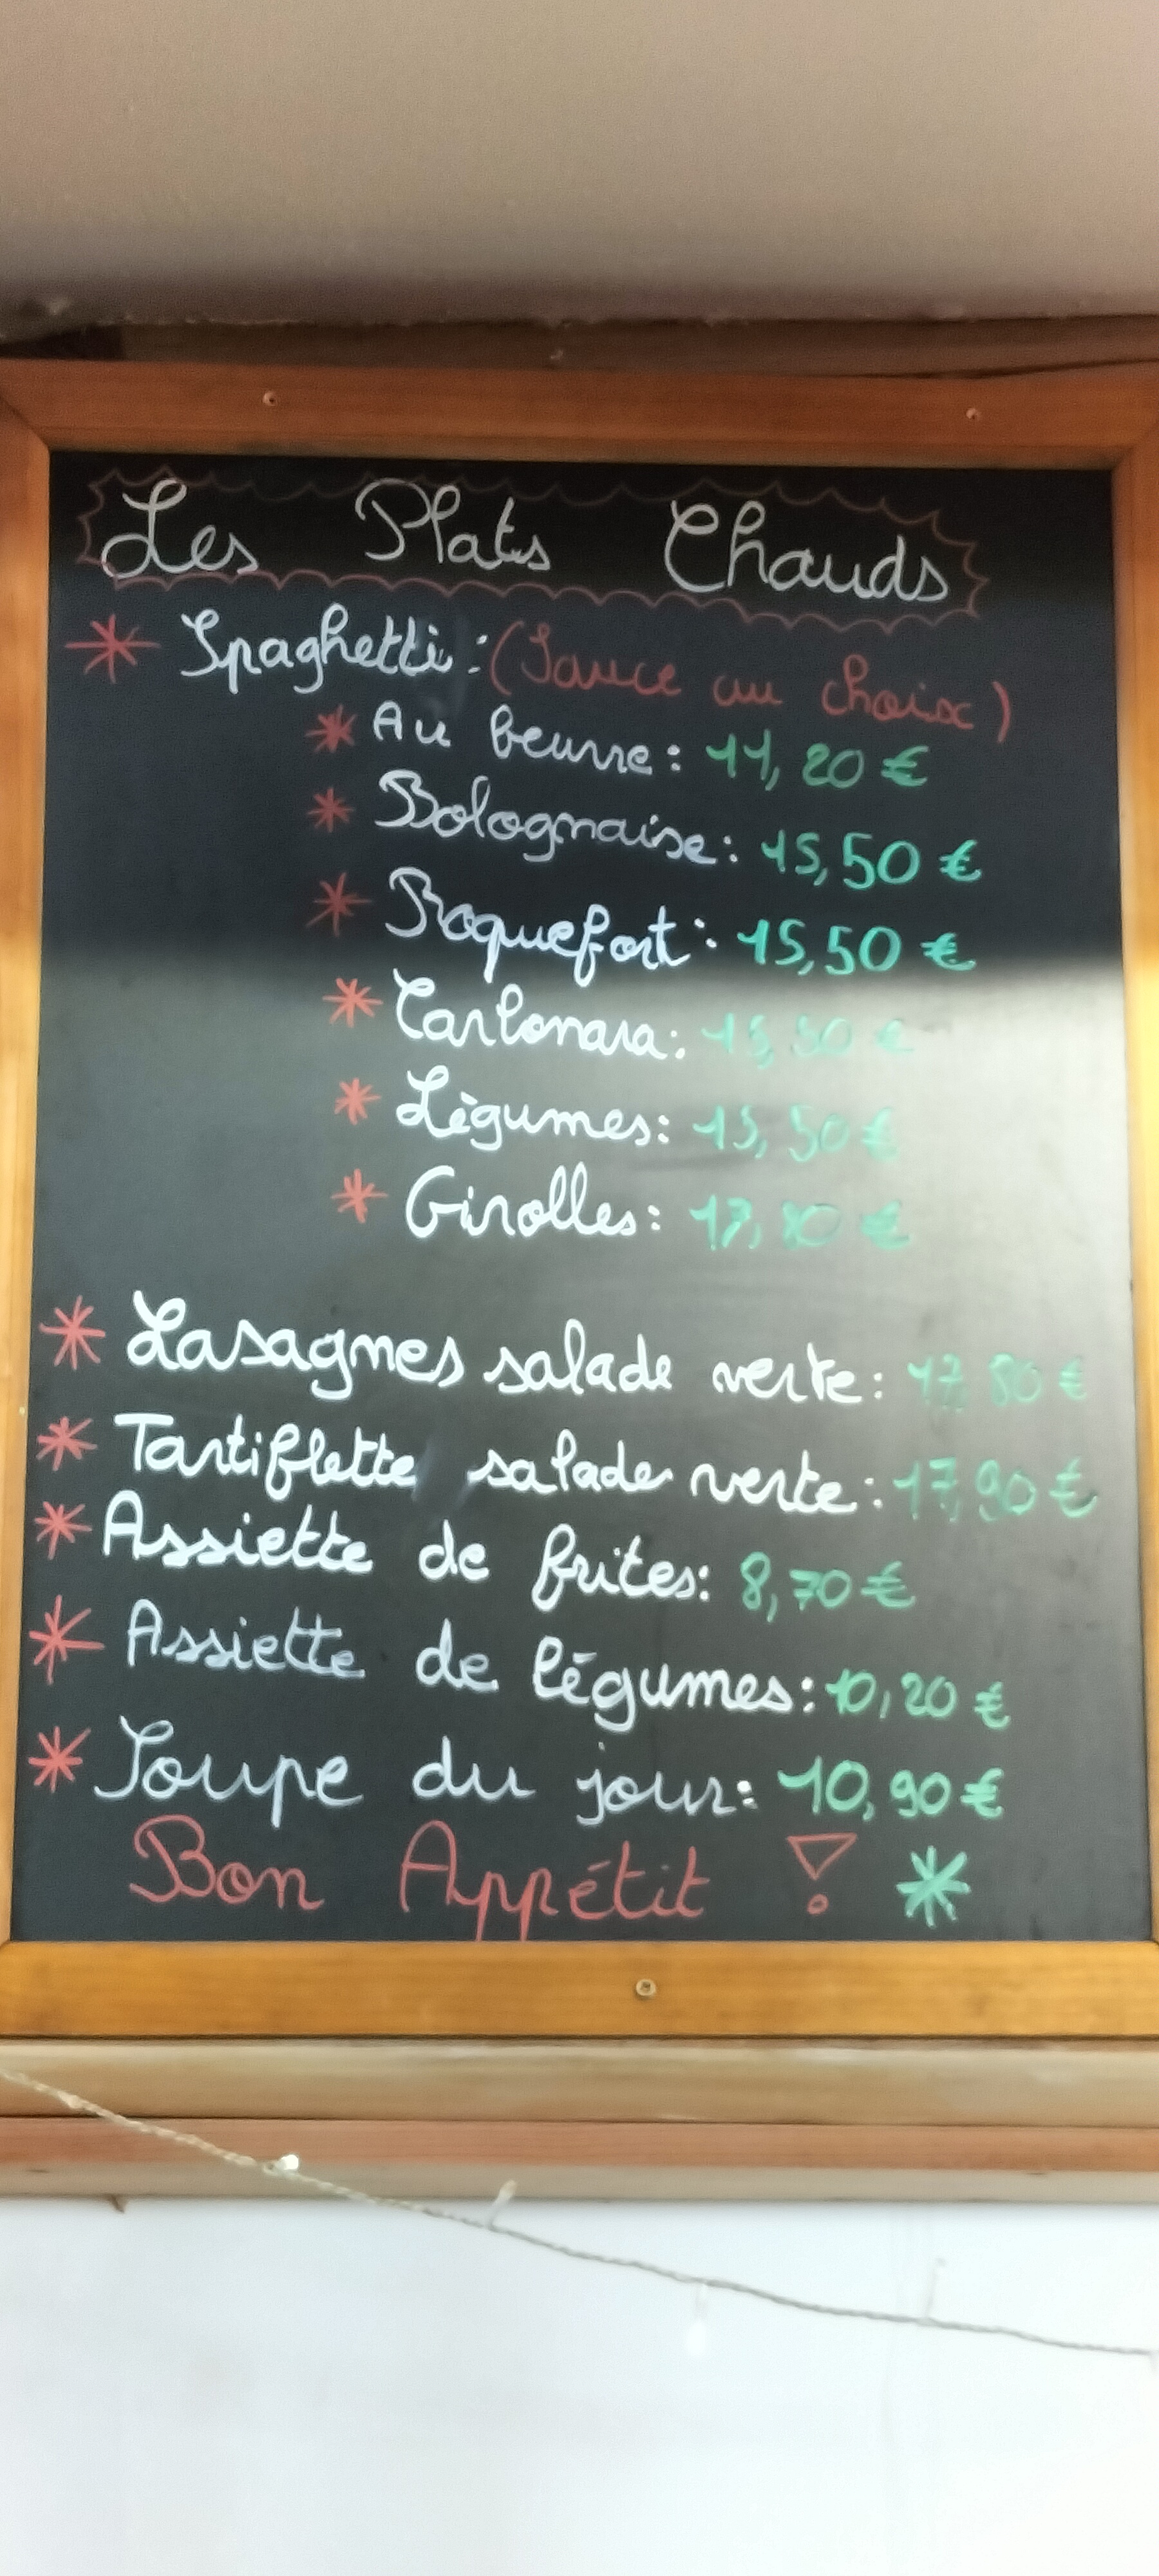 Les Plats Chauds
* Spaghetti : (Sauce au choix)
* Au beurre : 11,20 €
* Bolognaise : 15,50 €
* Roquefort : 15,50 €
* Carbonara : 15,50 €
* Légumes : 15,50 €
* Girolles : €
* Lasagnes salade verte : 17,80 €
* Tartiflette salade verte : 17,90 €
* Assiette de frites : 8,70 €
* Assiette de légumes : 10,20 €
* Soupe du jour : 10,90 €
Bon Appétit ! *